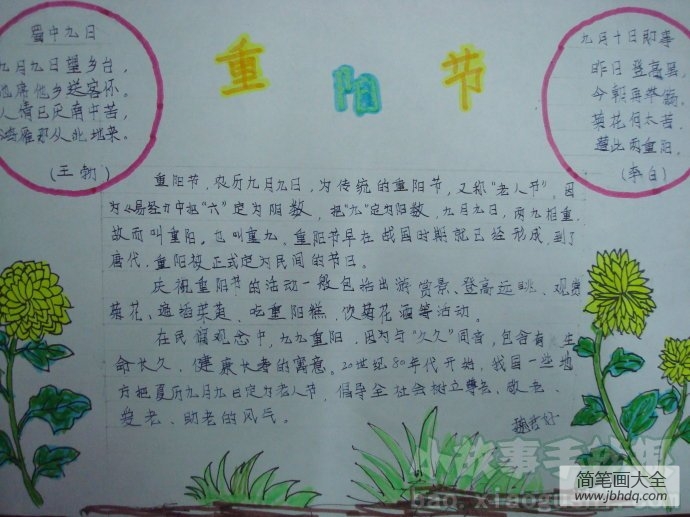 重阳节
蜀中九日
九月九日望乡台，
他席他乡送客杯。
人情已厌南中苦，
鸿雁那从北地来。
（王勃）
九月十日即事
昨日登高罢，
今朝再举觞。
菊花何太苦，
遭此两重阳。
（李白）
重阳节，农历九月九日，为传统的重阳节，又称“老人节”。因
为《易经》中把“六”定为阴数，把“九”定为阳数，九月九日，两九相重，
故而叫重阳。也叫重九，重阳节早在战国时期就已经形成，到了
唐代，重阳被正式定为民间的节日。
庆祝重阳节的活动一般包括出游赏景、登高远眺、观赏
菊花、遍插茱萸、吃重阳糕、饮菊花酒等活动。
在民俗观念中，九九重阳，因为与“久久”同音，包含有生
命长久、健康长寿的寓意。20世纪80年代开始，我国一些地
方把夏历九月九日定为老人节，倡导全社会树立尊老、敬老、
爱老、助老的风气。
简笔画大全
www.jbhdq.com